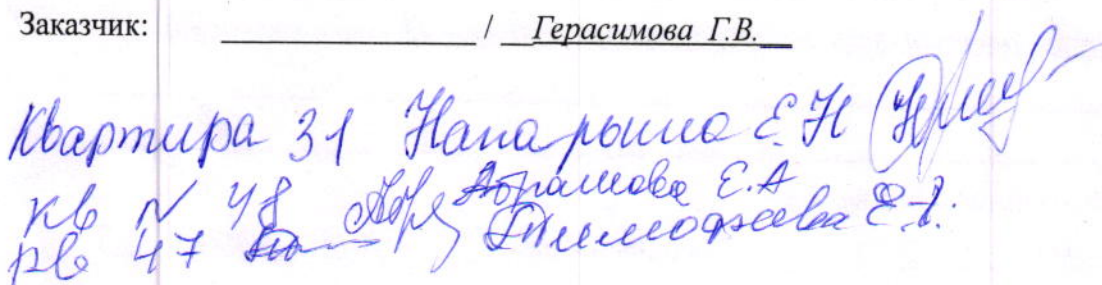 Заказчик: / Герасимова Г.В.
Квартира 31 Напарьина Е.Н
кв N 48 Абрамова Е.А
кв 47 Тимофеева Е.А.